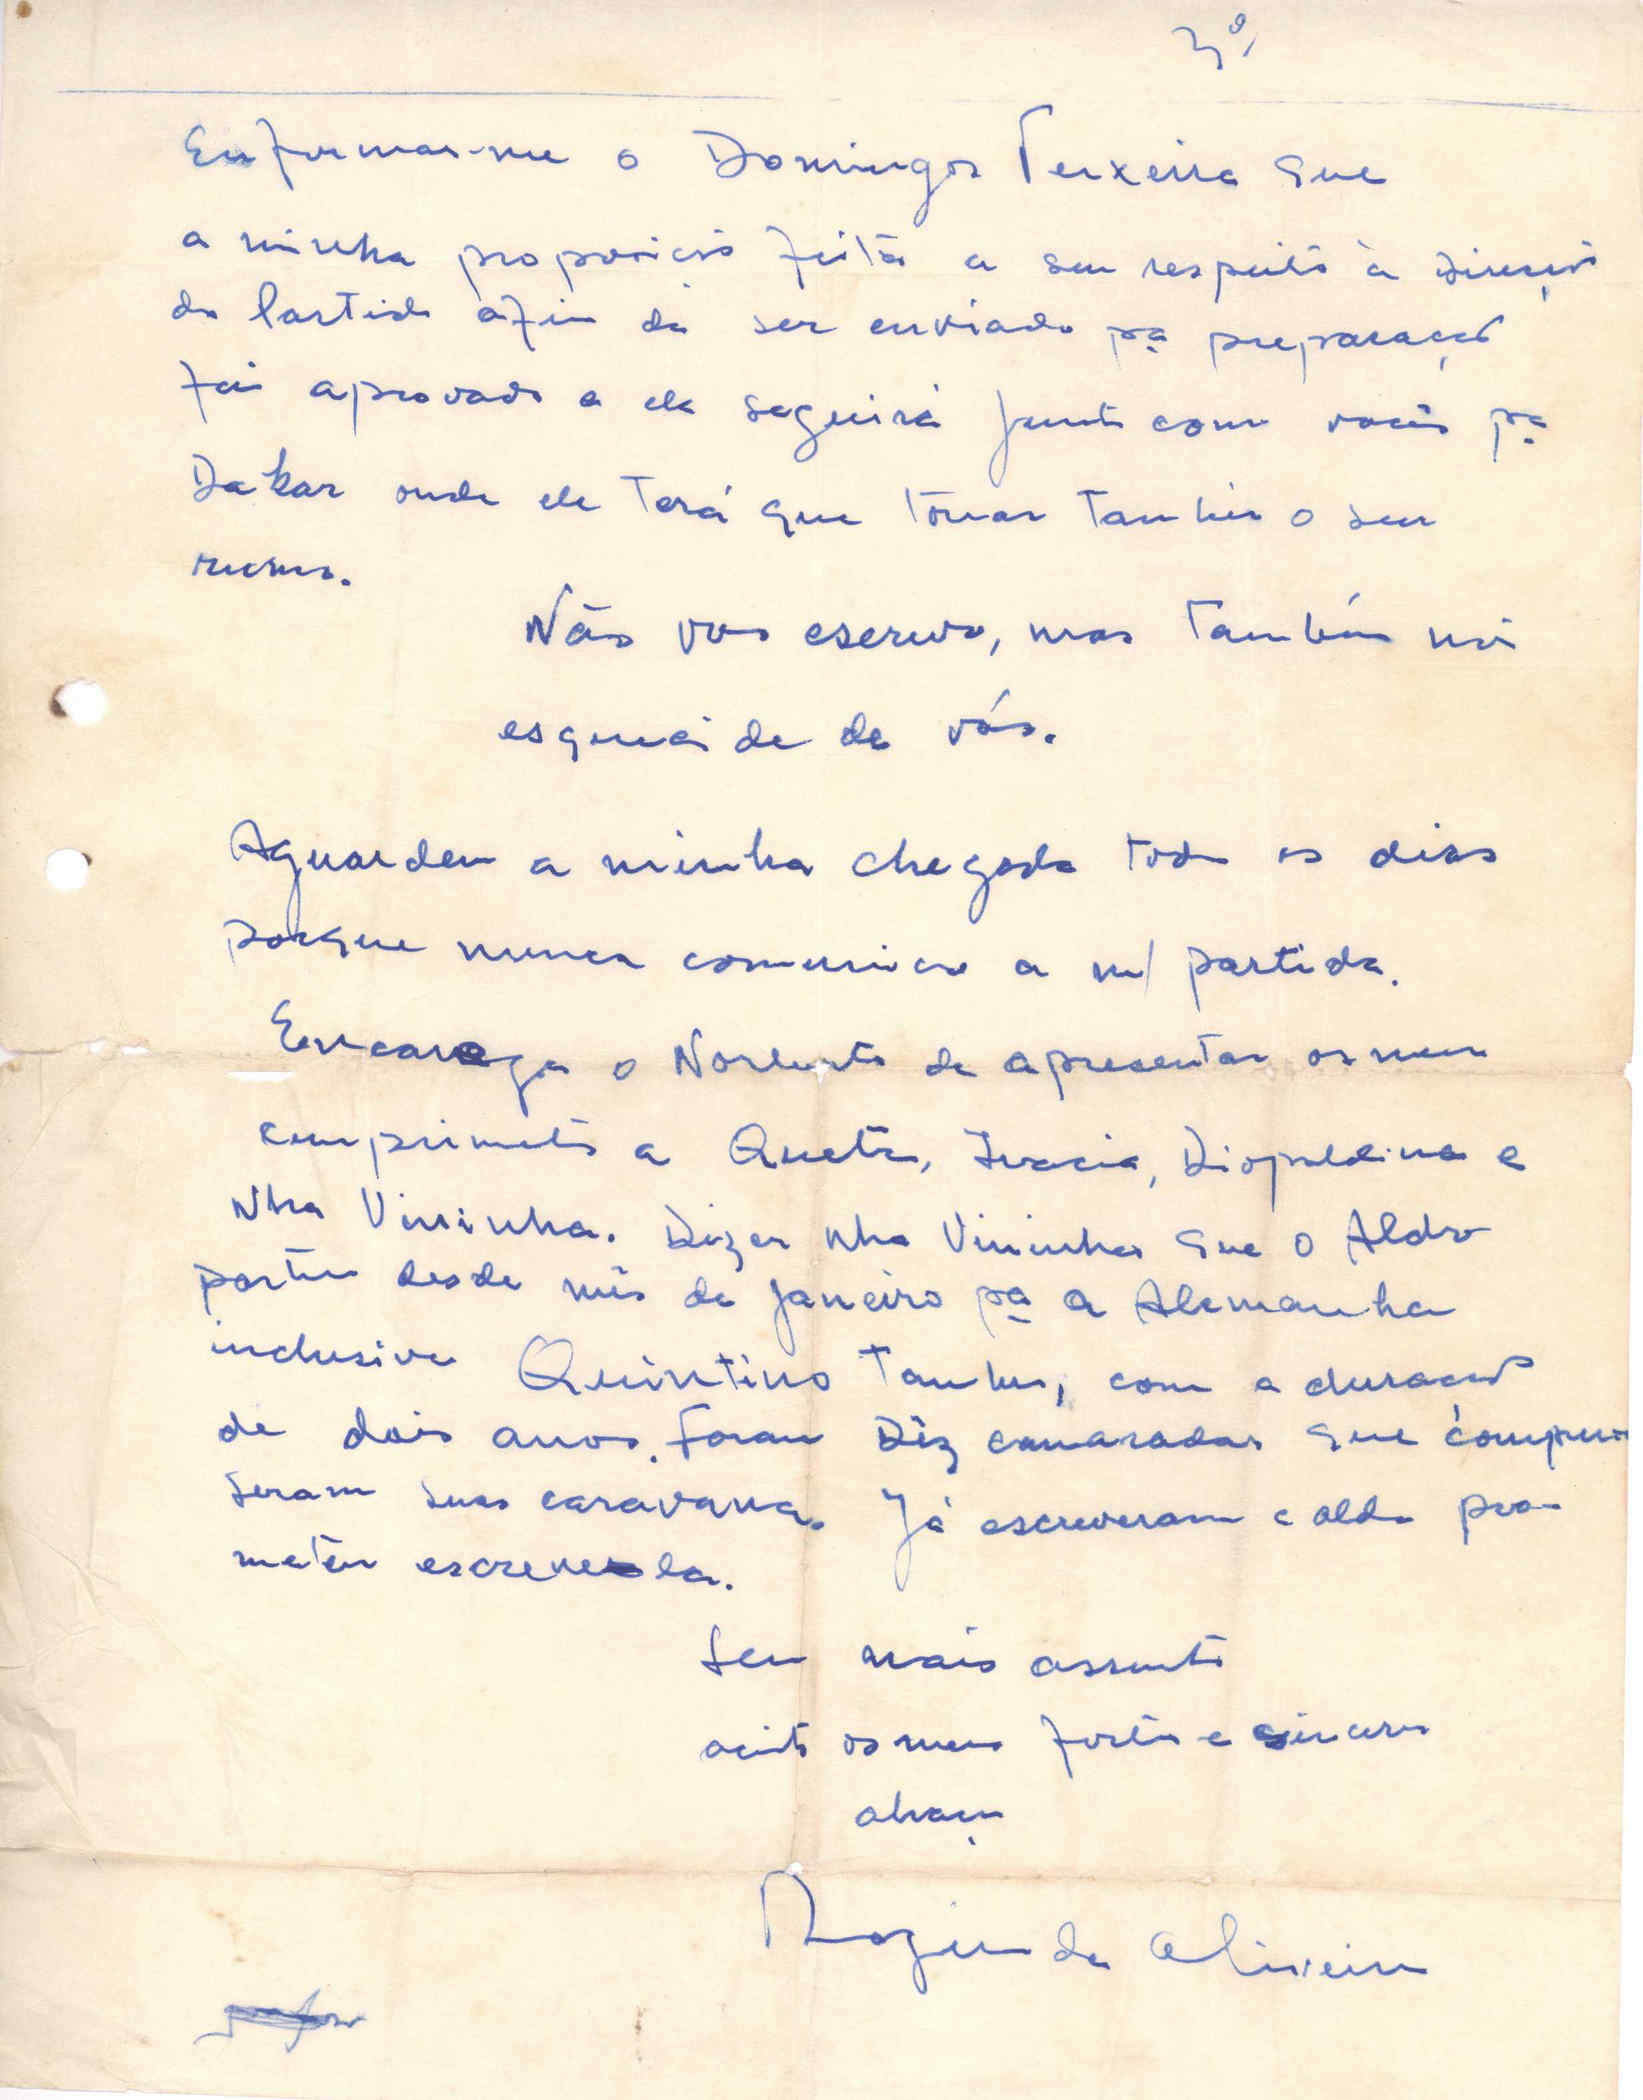 3º
Enformar-me o Domingos Teixeira que
a minha proposição feita a seu respeito à Direcção
do Partido afim de ser enviado pª preparação
foi aprovado e ele seguirá junto com vocês pª
Dakar onde ele terá que tomar também o seu
rumo.
Não vos escrevo, mas também não
esqueci de de vós.
Aguardem a minha chegada todos os dias
porque nunca comunico a m/ partida.
Encarega o Norberto de apresentar os meus
cumprimetos a Queta, Diopoldina e
Nha Vininha. Dizer Nha Vininha que o Aldo
partiu desde mês de Janeiro pª a Alemanha
inclusive Quintino tambem, com a duração
de dois anos. Foram Dêz camaradas que compu
seram suas caravana. Já escreveram e aldo pro-
meteu escreve-la.
Sem mais assunto
aceite os meus fortes e sinceros
abraços
de Oliveira